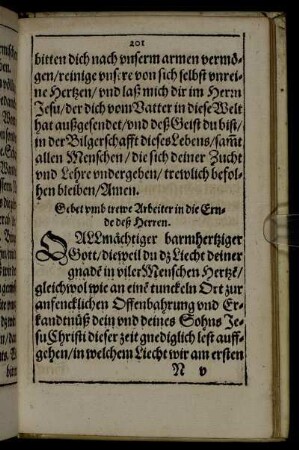 201
bitten dich nach vnserm armen vermö-
gen/reinige vnsere von sich selbst vnrei-
ne Hertzen/ vnd laß mich dir im Herrn
Jesu/der dich vom Vatter in diese Welt
hat außgesendet/vnd deß Geist du bist/
in der Bilgerschafft dieses Lebens/samt
allen Menschen/die sich deiner Zucht
vnd Lehre vndergeben/ trewlich befol-
hen bleiben/Amen.
Gebet vmb trewe Arbeiter in die Ern-
de deß Herren.
O ALLmächtiger barmhertziger
Gott/dieweil du dz Liecht deiner
gnadē in viler Menschen Hertzē/
gleichwol wie an einē tunckeln Ort zur
anfencklichen Offenbahrung vnd Er-
kandtnüß dein vnd deines Sohns Je-
su Christi dieser zeit gnediglich lest auff-
gehen/in welchem Liecht wir am ersten
N v